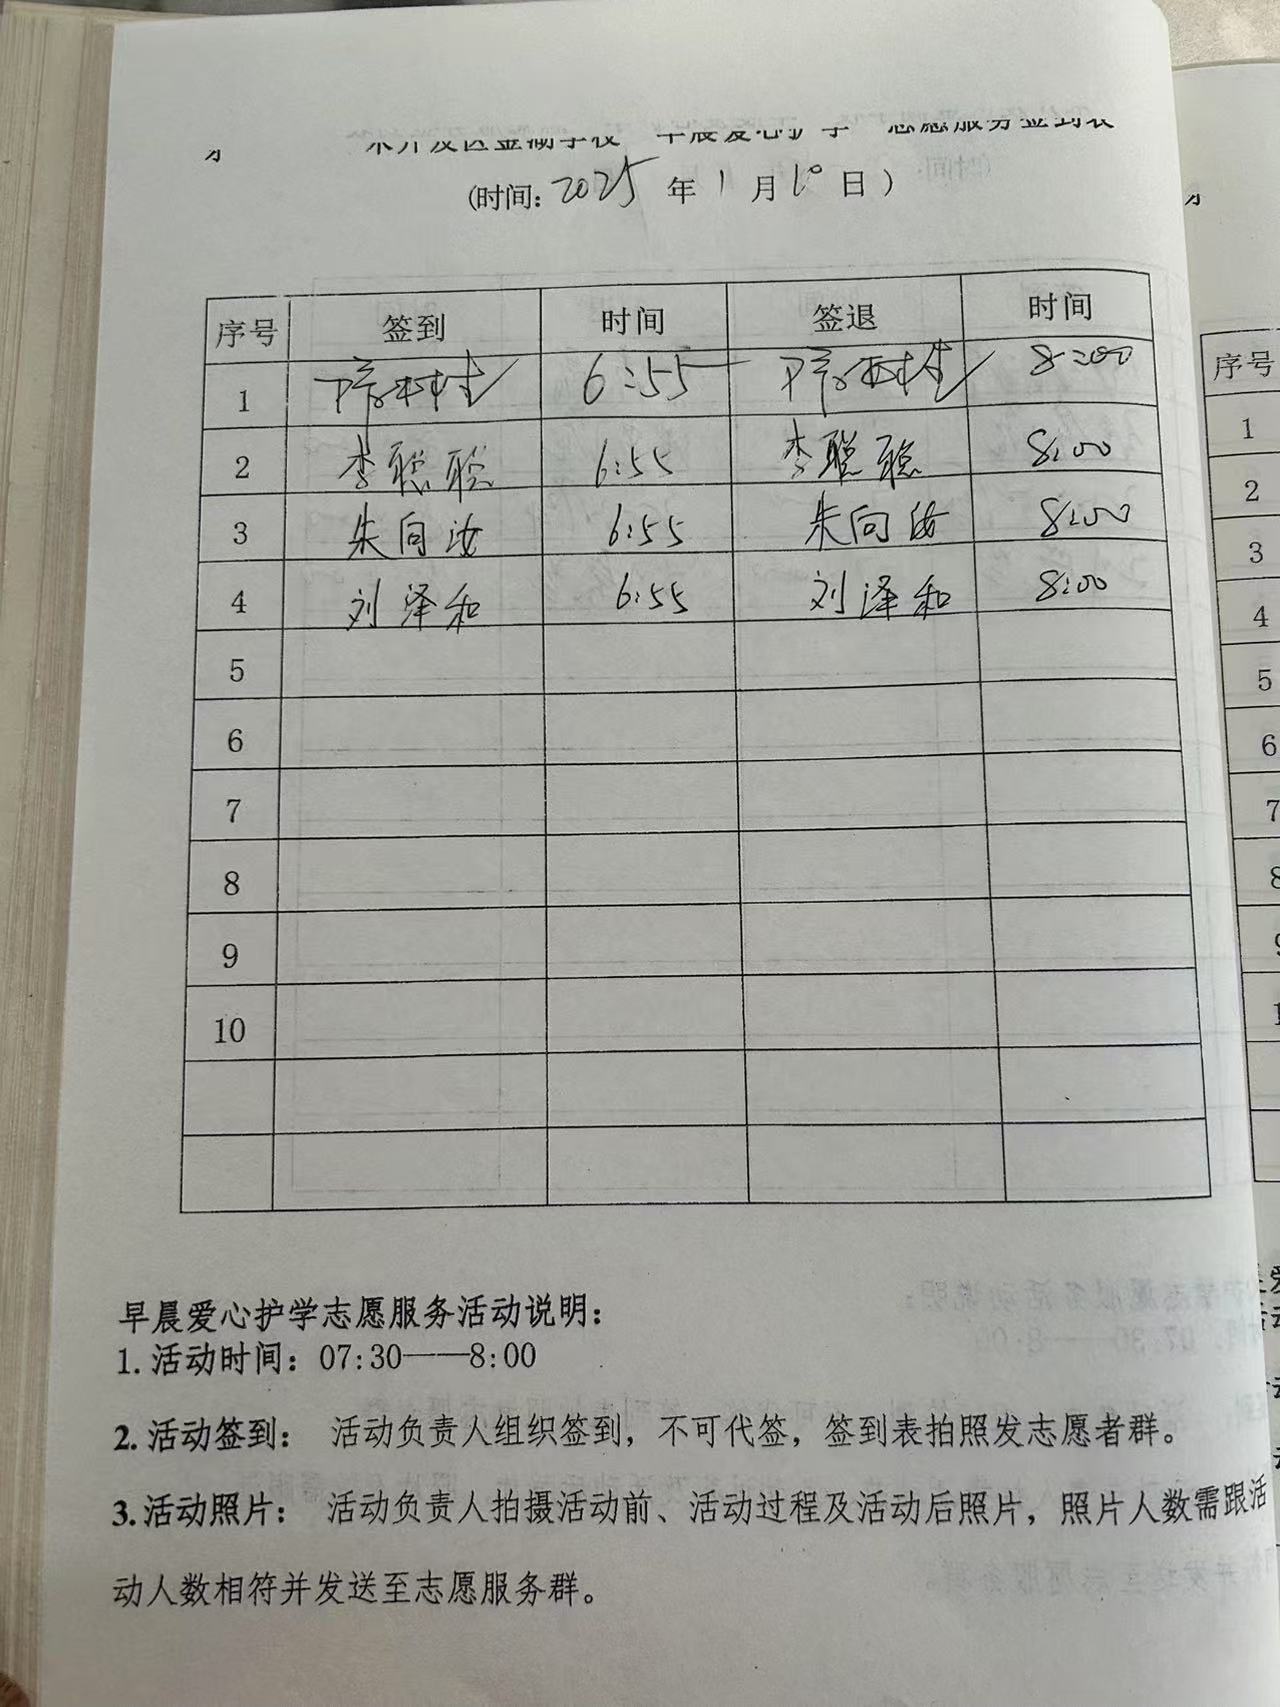 开发区金湖学校 早晨爱心护学 志愿服务签到表
(时间: 2025 年 1 月 10 日)
序号 签到 时间 签退 时间
1 6:55 8:00
2 李聪聪 6:55 李聪聪 8:00
3 朱向汝 6:55 朱向汝 8:00
4 刘泽和 6:55 刘泽和 8:00
5
6
7
8
9
10
早晨爱心护学志愿服务活动说明：
1. 活动时间：07:30——8:00
2. 活动签到： 活动负责人组织签到，不可代签，签到表拍照发志愿者群。
3. 活动照片： 活动负责人拍摄活动前、活动过程及活动后照片，照片人数需跟活
动人数相符并发送至志愿服务群。
序号
1
2
3
4
5
6
7
8
9